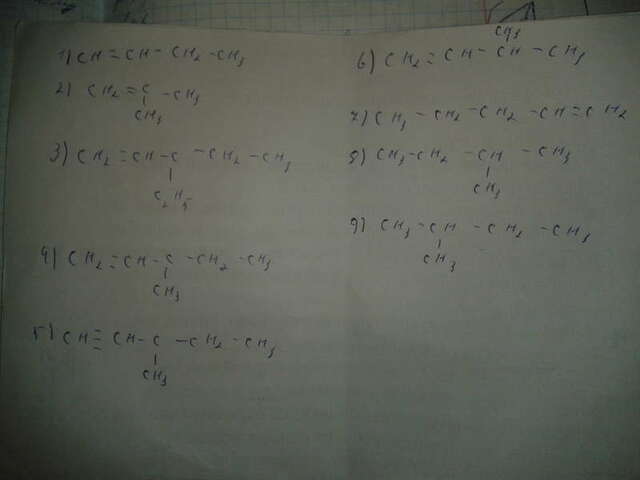 1) CH=CH-CH₂-CH₃
2) CH₂=C-CH₃
CH₃
3) CH₂=CH-C-CH₂-CH₃
C₂H₅
4) CH₂=CH-C-CH₂-CH₃
CH₃
5) CH≡CH-C-CH₂-CH₃
CH₃
CH₃
6) CH₂=CH-CH-CH₃
7) CH₃-CH₂-CH₂-CH=CH₂
8) CH₃-CH₂-CH-CH₃
CH₃
9) CH₃-CH-CH₂-CH₃
CH₃